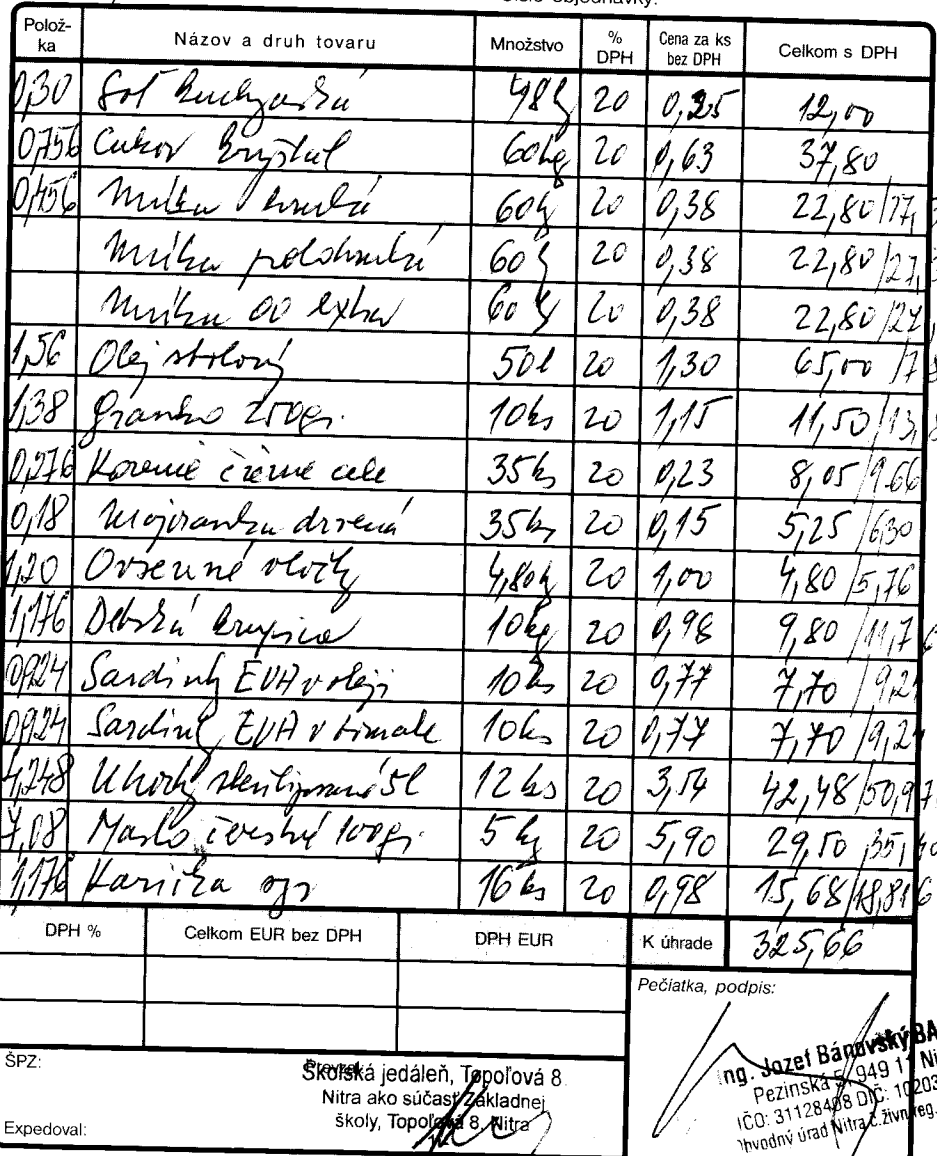 Polož-
ka
Názov a druh tovaru
Množstvo
% DPH
Cena za ks
bez DPH
Celkom s DPH
0,30 Soľ kuchynská 48 20 0,25 12,00
0,756 Cukor kryštál 60kg 20 0,63 37,80
0,456 Múka hrubá 60 20 0,38 22,80/27,3
Múka polohrubá 60 20 0,38 22,80/27,3
Múka 00 extra 60 20 0,38 22,80/27,
1,56 Olej stolový 50l 20 1,30 65,00
1,38 Granko 250gr. 10ks 20 1,15 11,50/13,8
0,276 Korenie čierne celé 35ks 20 0,23 8,05/9,66
0,18 Majoránka drvená 35ks 20 0,15 5,25/6,30
1,20 Ovsenné vločky 4,80kg 20 1,00 4,80/5,76
1,176 Detská krupica 10kg 20 0,98 9,80/11,76
0,924 Sardinky EVA v oleji 10ks 20 0,77 7,70/9,24
0,924 Sardinky EVA v tomate 10ks 20 0,77 7,70/9,24
4,248 Uhorky sterilizované 5l 12ks 20 3,54 42,48/50,97
7,08 Maslo čerstvé 100gr. 5kg 20 5,90 29,50/35,40
1,176 Karička 16ks 20 0,98 15,68/18,816
DPH %
Celkom EUR bez DPH
DPH EUR
K úhrade 325,66
Pečiatka, podpis:
ŠPZ:
Školská jedáleň, Topoľová 8
Nitra ako súčasť Základnej
školy, Topoľová 8, Nitra
Expedoval:
Ing. Jozef Bánovský BA
Pezinská 5, 949 11 Ni
IČO: 31128408 DIČ: 10203
Obvodný úrad Nitra č. živn. reg.